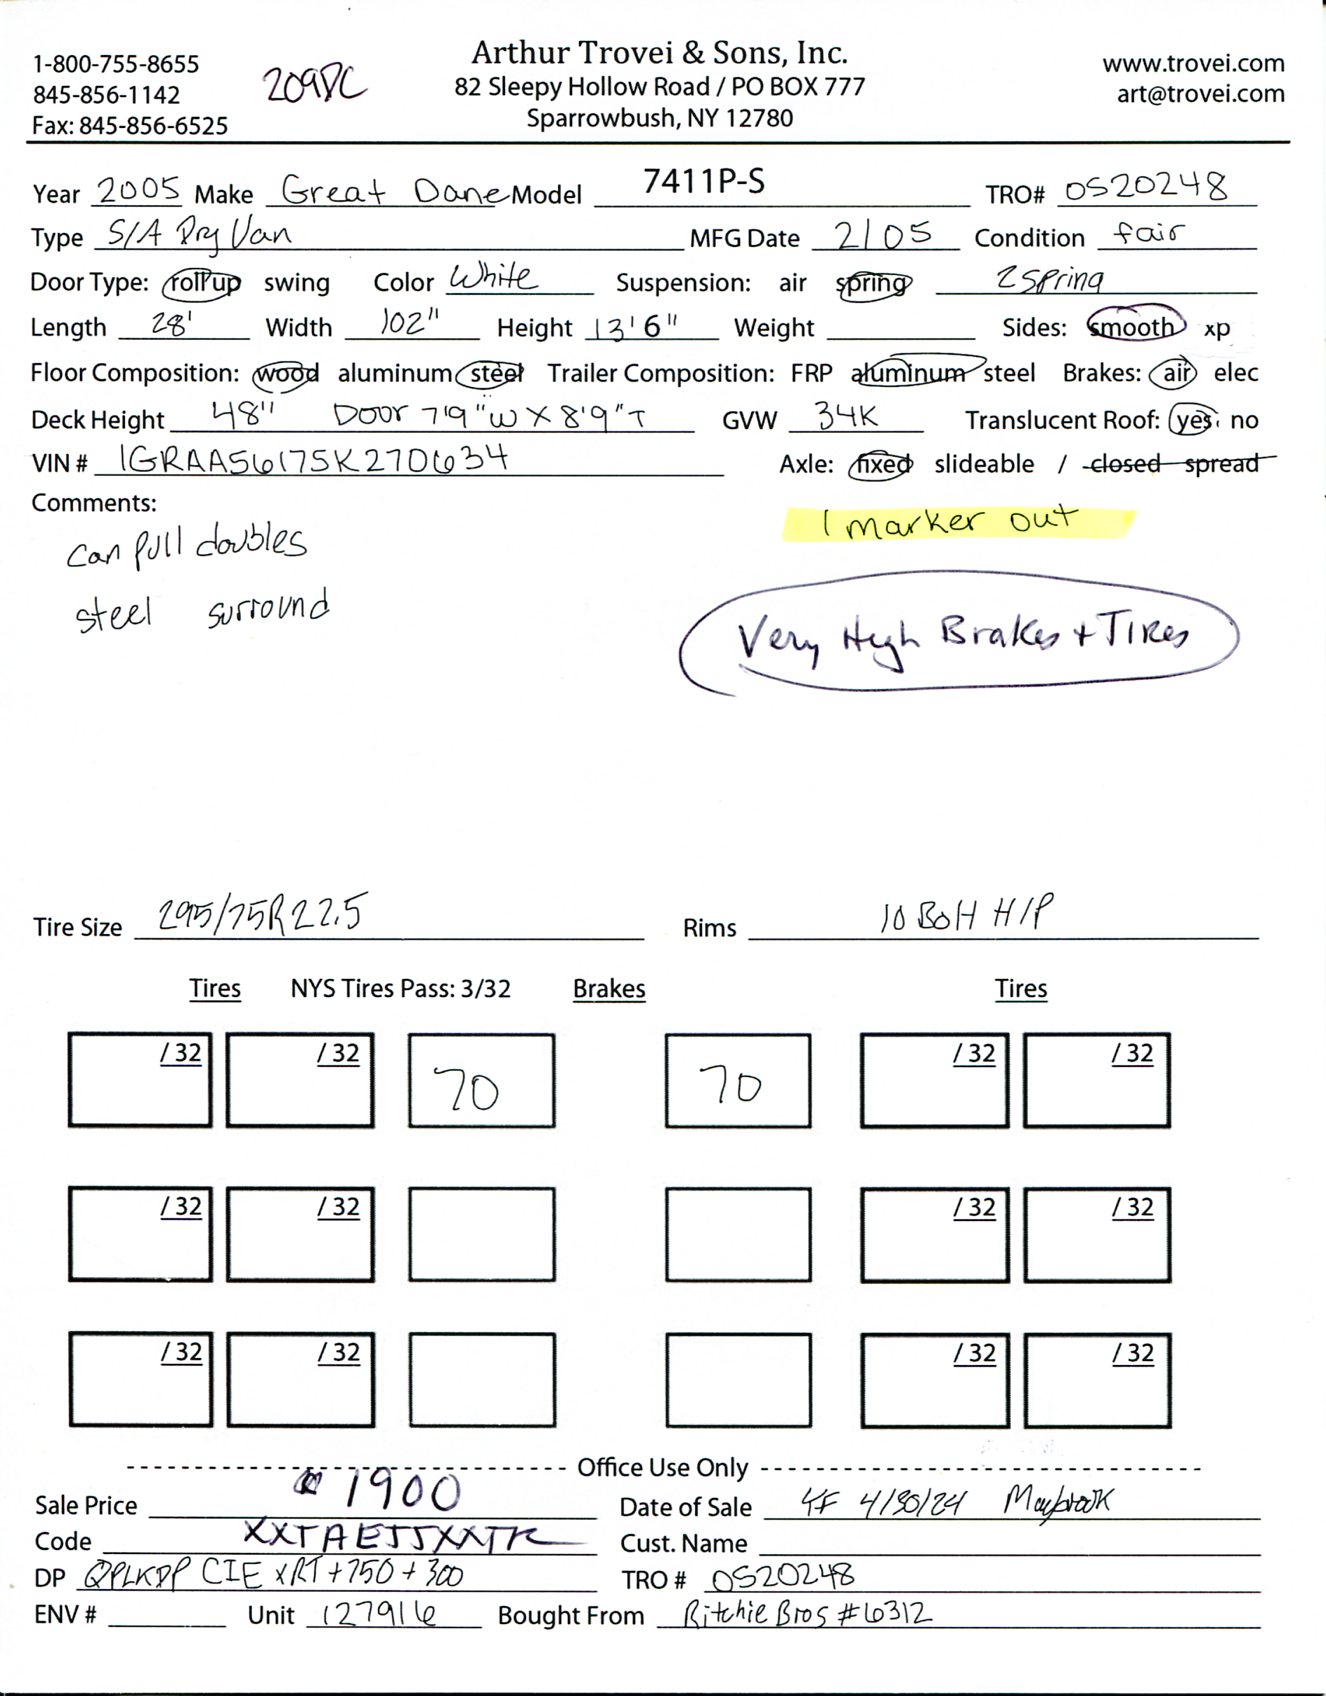 Arthur Trovei & Sons, Inc.
1-800-755-8655 209DC 82 Sleepy Hollow Road / PO BOX 777 www.trovei.com
845-856-1142 Sparrowbush, NY 12780 art@trovei.com
Fax: 845-856-6525
Year 2005 Make Great Dane Model 7411P-S TRO# 0S20248
Type S/A Dry Van MFG Date 2/05 Condition fair
Door Type: roll up swing Color White Suspension: air spring 2 spring
Length 28' Width 102" Height 13'6" Weight Sides: smooth xp
Floor Composition: wood aluminum steel Trailer Composition: FRP aluminum steel Brakes: air elec
Deck Height 48" Door 7'9"W X 8'9"T GVW 34K Translucent Roof: yes no
VIN # 1GRAA56175K270634 Axle: fixed slideable / closed spread
Comments:
1 marker out
can pull doubles
steel surround
Very High Brakes + Tires
Tire Size 295/75R22.5 Rims 10 BoH H/P
Tires NYS Tires Pass: 3/32 Brakes Tires
/ 32 / 32 70 70 / 32 / 32
/ 32 / 32 / 32 / 32
/ 32 / 32 / 32 / 32
Office Use Only
Sale Price 1900 Date of Sale 4/30/24 Maybrook
Code Cust. Name
DP QPLKDP CIE XRT + 750 + 300 TRO # 0S20248
ENV # Unit 127916 Bought From Ritchie Bros #6312